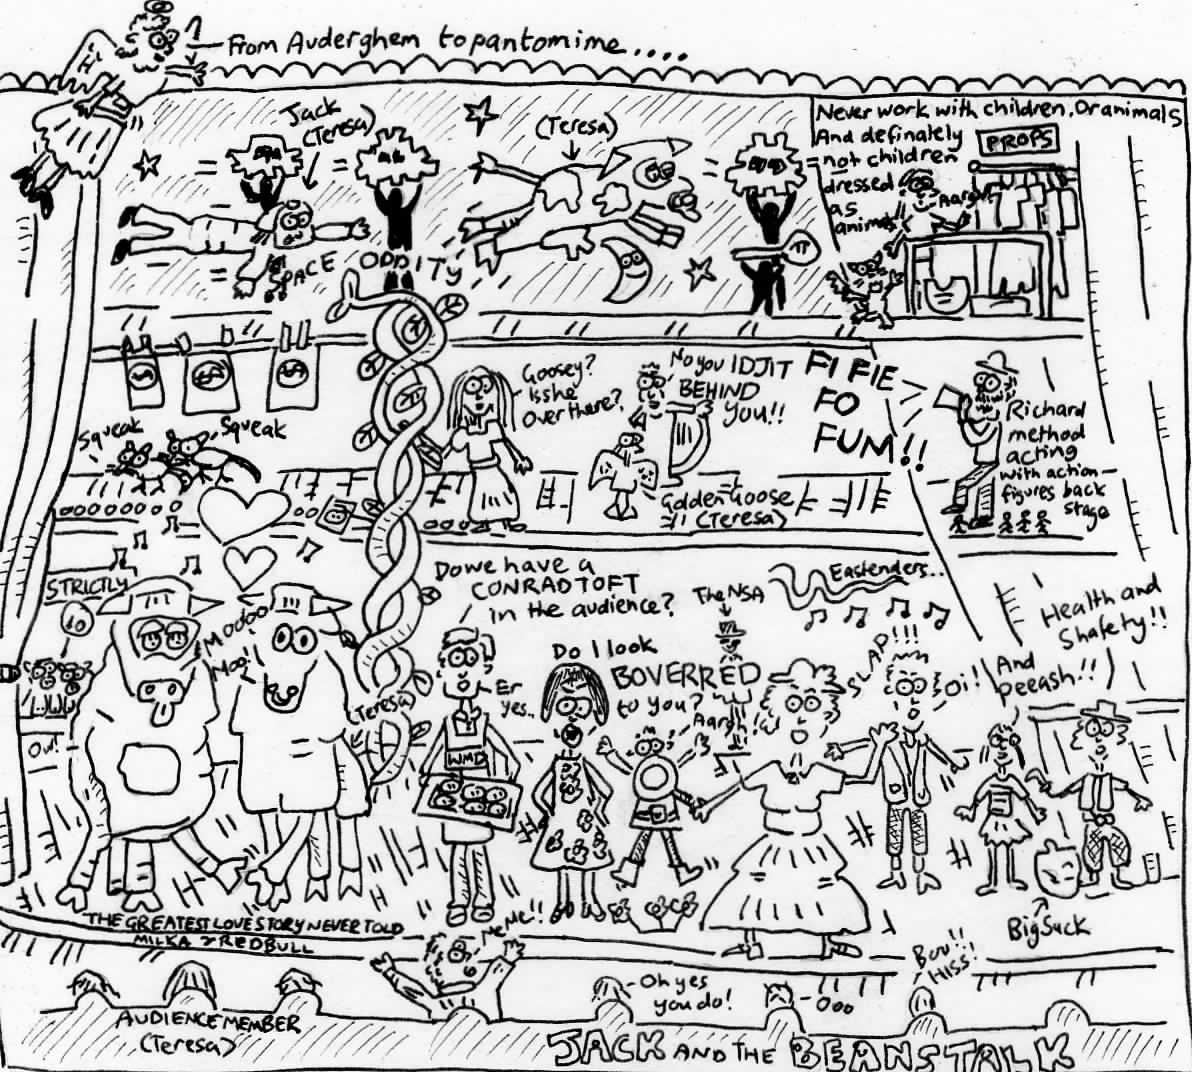 From Auderghem to pantomime....
Jack
(Teresa)
(Teresa)
SPACE ODDITY
Never work with children. Or animals
And definately
not children
dressed
as
animals
PROPS
Aargh
Squeak
Squeak
Goosey?
Is she
over there?
No you IDJIT
BEHIND
you!!
Golden Goose
(Teresa)
FI FIE
FO
FUM!!
Richard
method
acting
with action
figures back
stage
STRICTLY
10
Ow!
Modoo!
Moo!
(Teresa)
THE GREATEST LOVE STORY NEVER TOLD
MILKA & RED BULL
Do we have a
CONRAD TOFT
in the audience?
Er
yes..
WMD
Do I look
BOVERRED
to you?
The NSA
Aargh!
Eastenders..
SLAP!!!
Oi!
And
peeash!!
Health and
Shafety!!
Big Suck
Me Me!!
Oh yes
you do!
Ooo
Boo!!
HISS!
AUDIENCE MEMBER
(Teresa)
JACK AND THE BEANSTALK